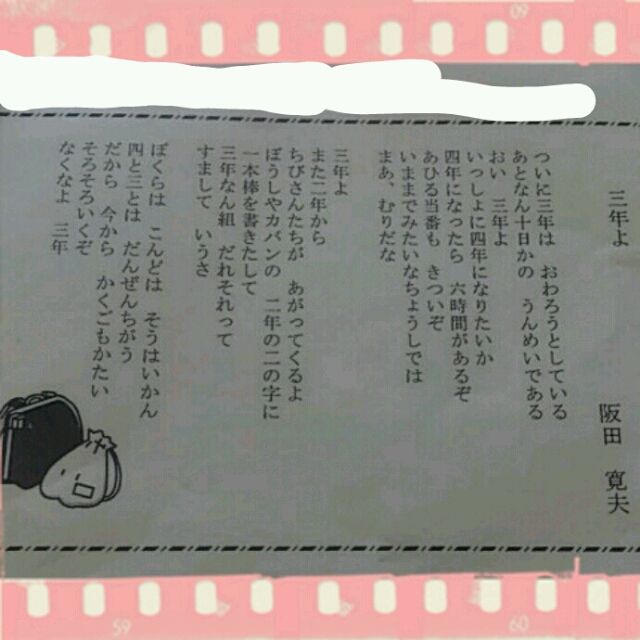 三年よ
阪田 寛夫
ついに三年は おわろうとしている
あとなん十日かの うんめいである
おい 三年よ
いっしょに四年になりたいか
四年になったら 六時間があるぞ
あひる当番も きついぞ
いままでみたいなちょうしでは
まあ、むりだな
三年よ
また二年から
ちびさんたちが あがってくるよ
ぼうしやカバンの 二年の二の字に
一本棒を書きたして
三年なん組 だれそれって
すまして いうさ
ぼくらは こんどは そうはいかん
四と三とは だんぜんちがう
だから 今から かくごもかたい
そろそろいくぞ
なくなよ 三年
09
59
60